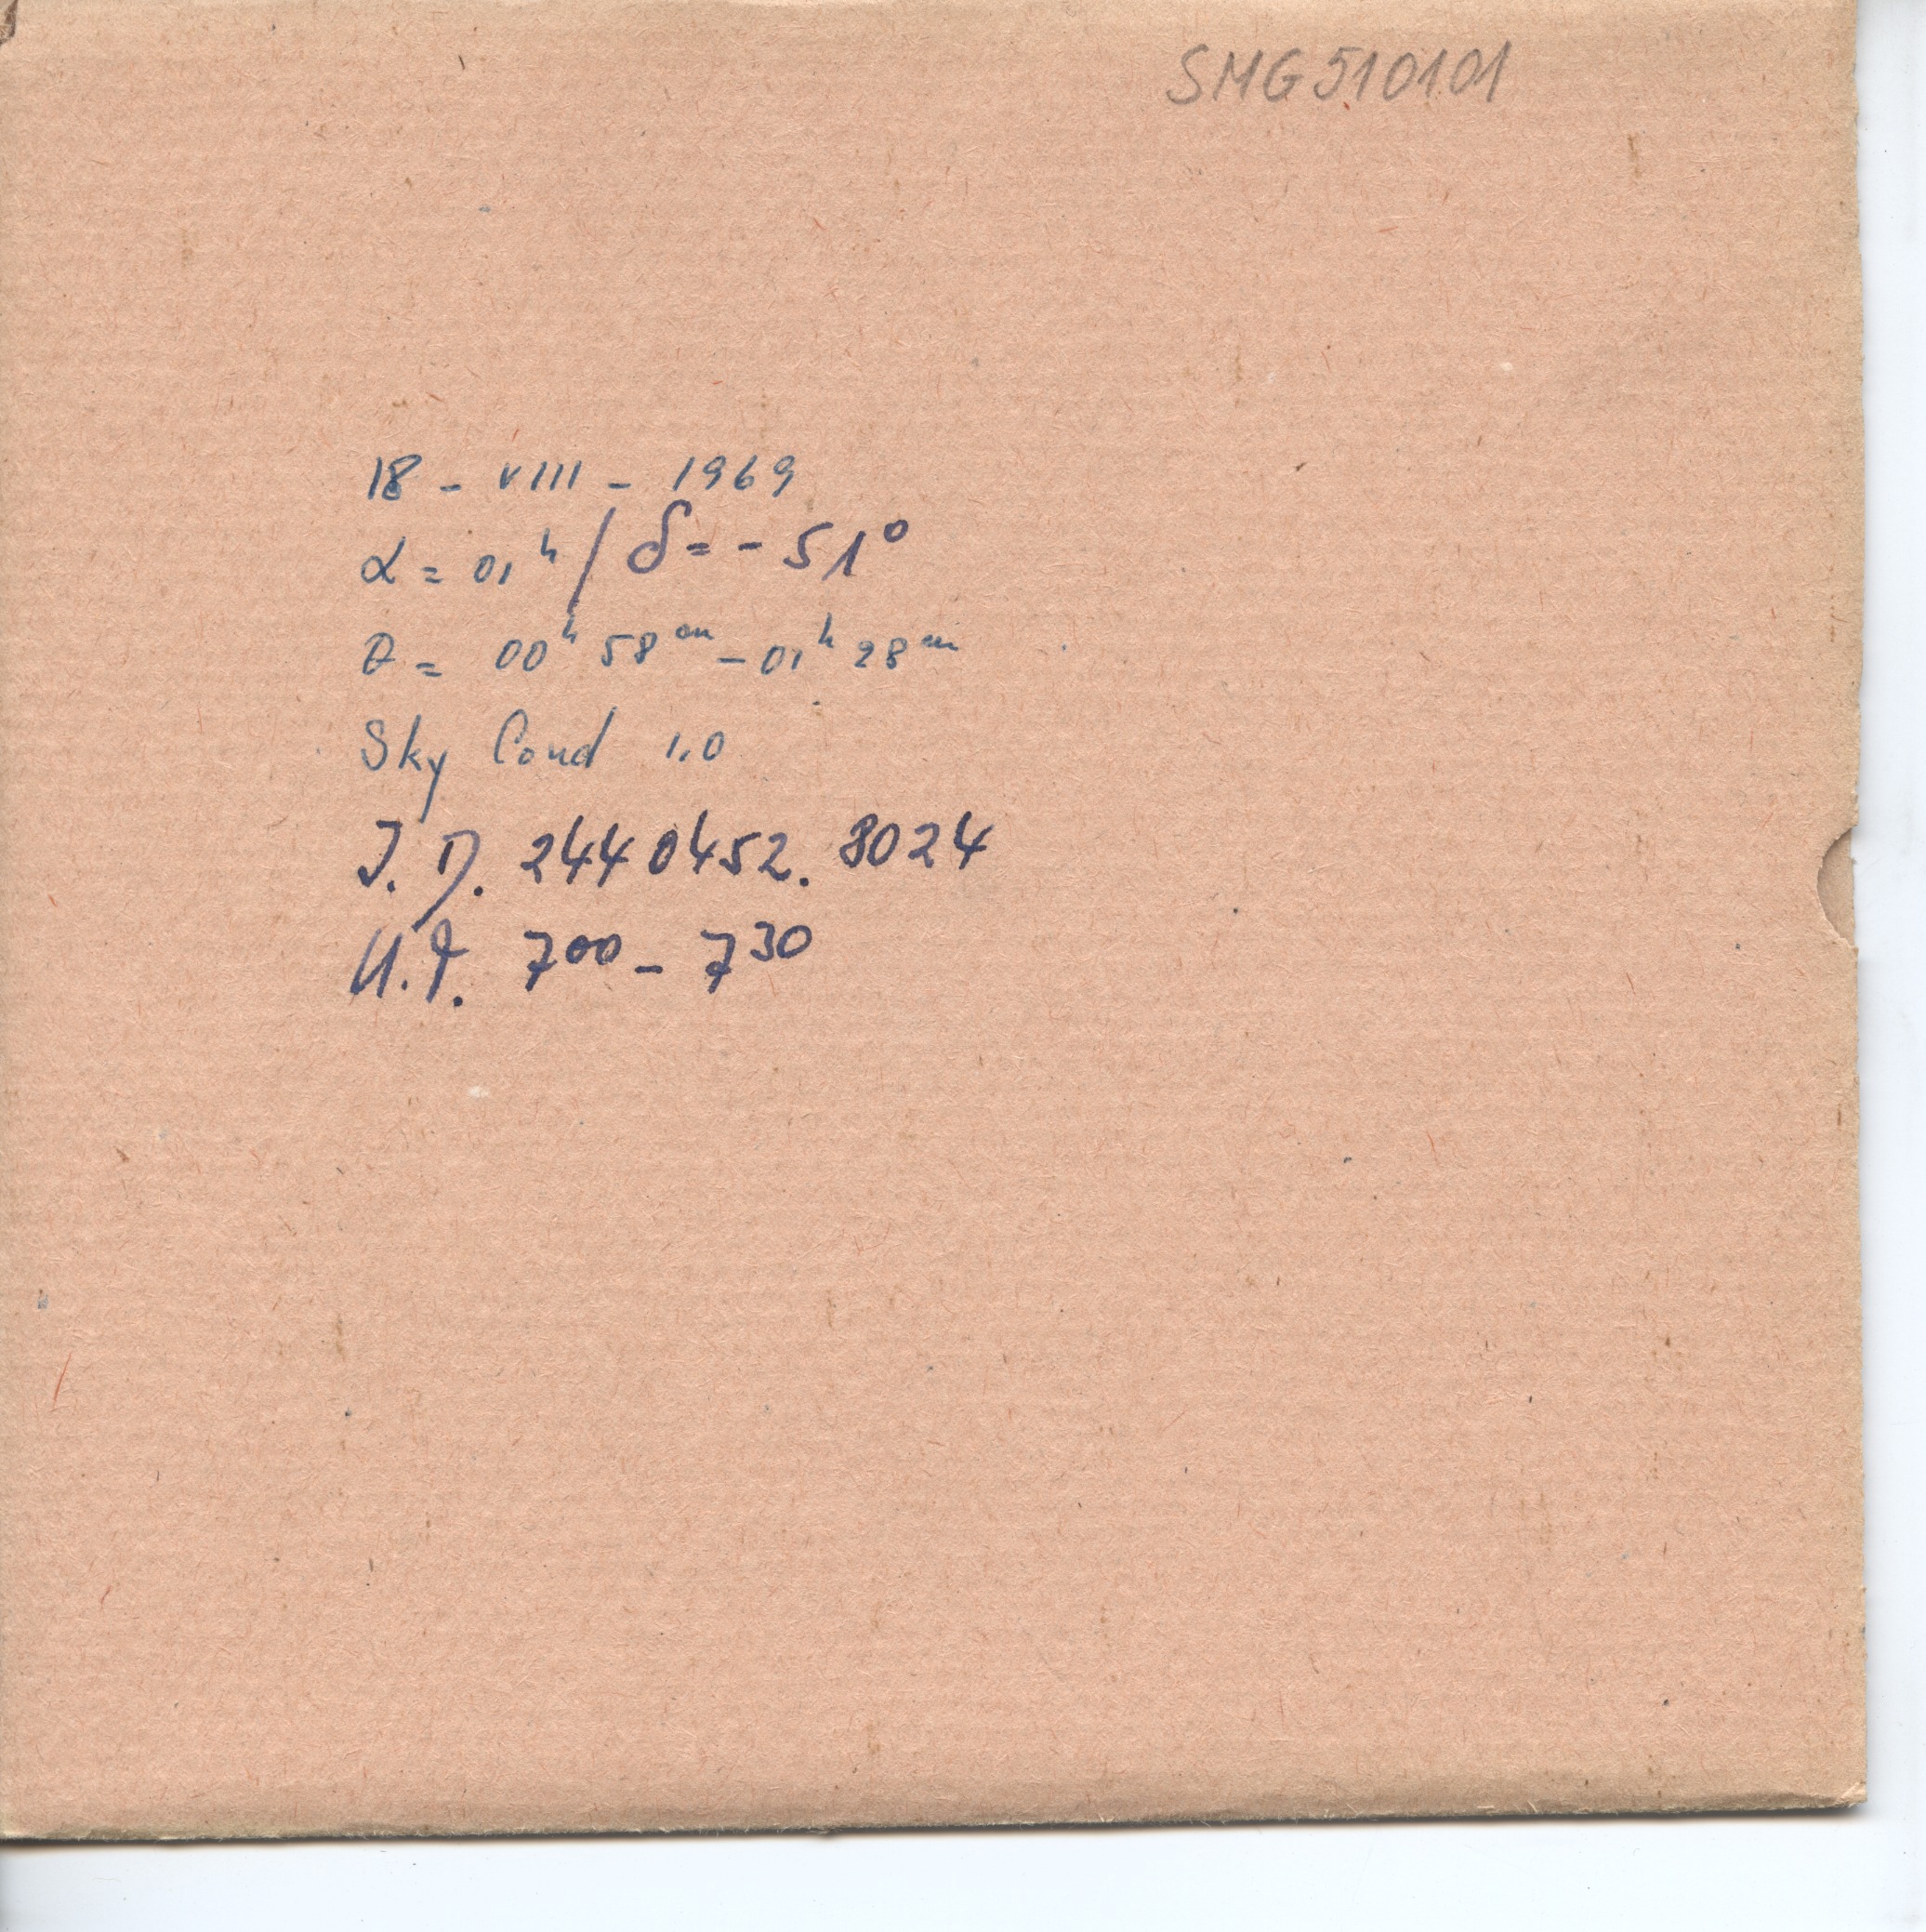 SMG510101
18 - VIII - 1969
α = 01ʰ / δ = - 51°
θ = 00ʰ 58ᵐ - 01ʰ 28ᵐ
Sky Cond 1,0
J.D. 2440452.8024
U.T. 7⁰⁰ - 7³⁰